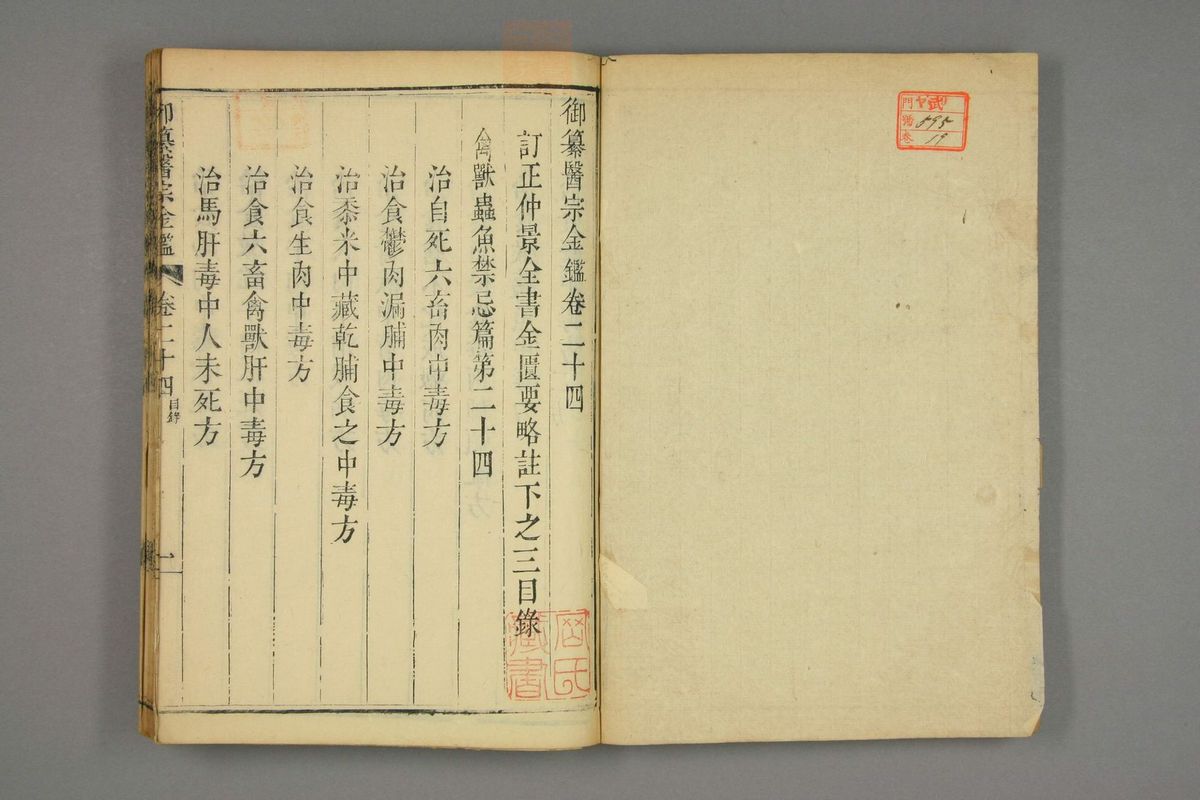 門 ヤ貳
號 895
卷 19
御纂醫宗金鑑卷二十四
訂正仲景全書金匱要略註下之三目錄
禽獸蟲魚禁忌篇第二十四
治自死六畜肉中毒方
治食鬱肉漏脯中毒方
治黍米中藏乾脯食之中毒方
治食生肉中毒方
治食六畜禽獸肝中毒方
治馬肝毒中人未死方
御纂醫宗金鑑 卷二十四 目錄 一
藏書